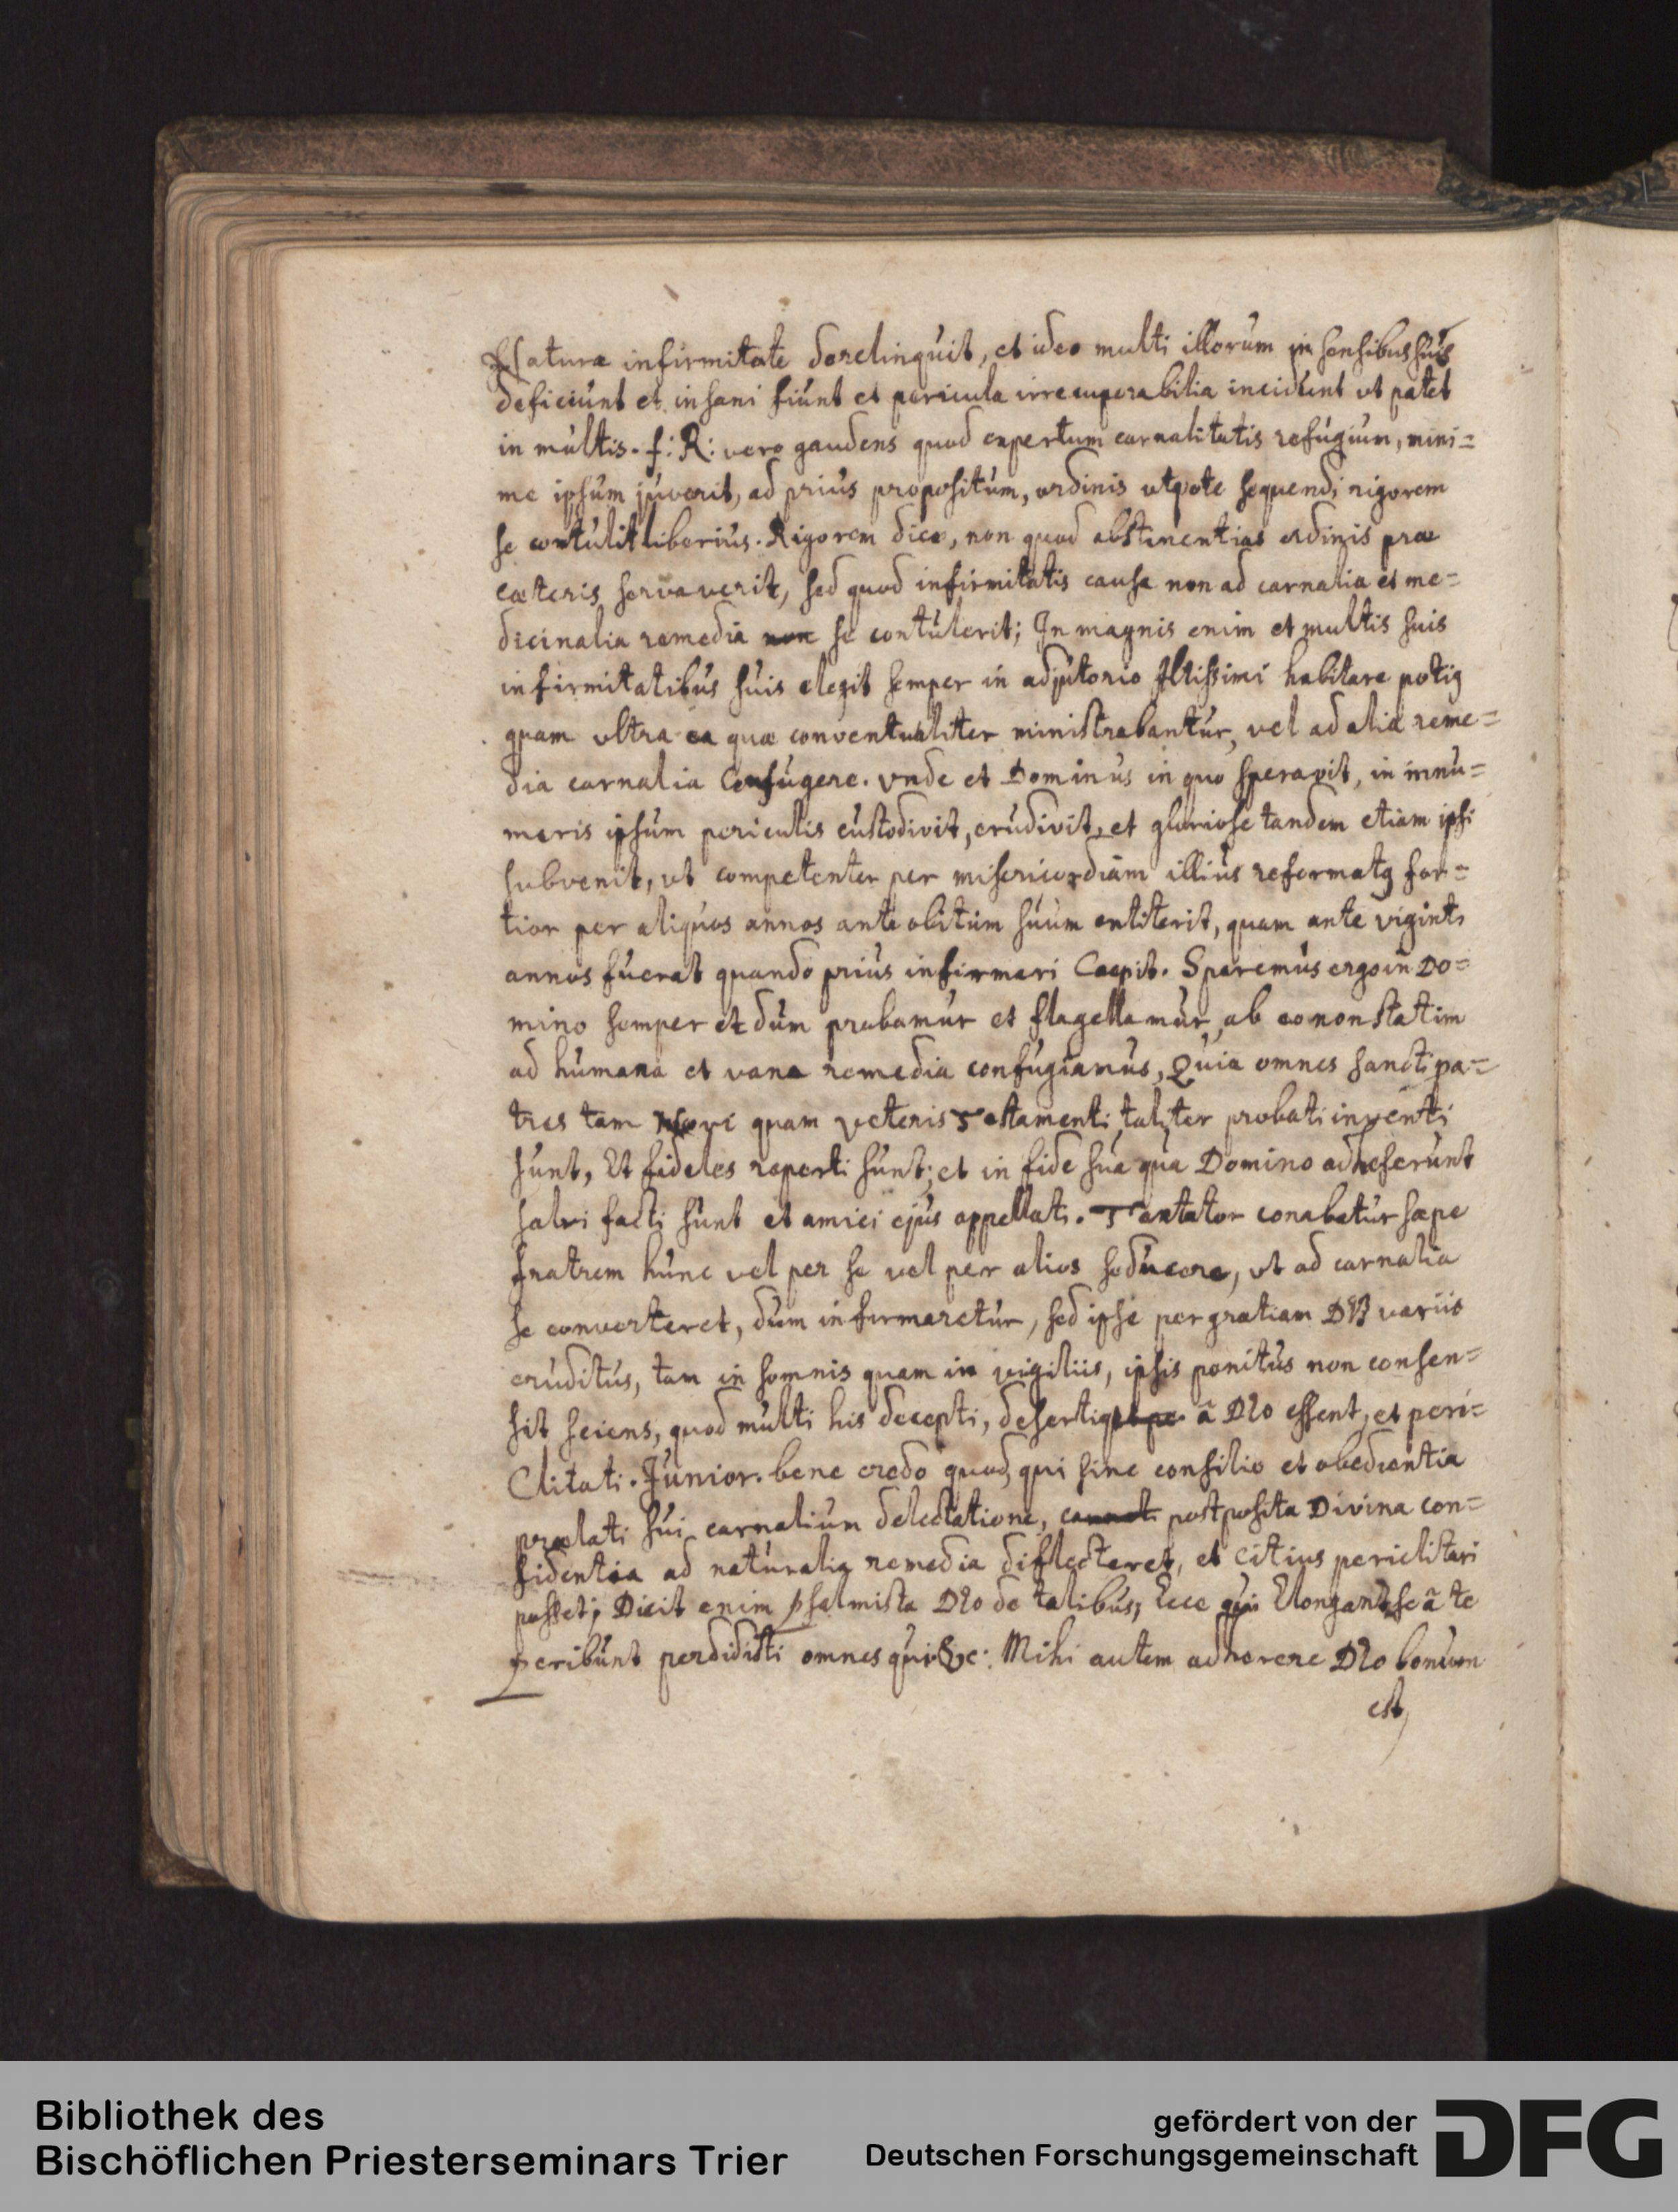 Naturæ infirmitate derelinquit, et ideo multi illorum in sensibus suis
deficiunt et insani fiunt et pericula irrecuperabilia incidunt ut patet
in multis. f: R: vero gaudens quod expertum carnalitatis refugium, mini=
me ipsum juverit, ad prius propositum, ordinis utpote sequendi rigorem
se contulit liberius. Rigorem dico, non quod abstinentias ordinis præ
cæteris servaverit, sed quod infirmitatis causa non ad carnalia et me=
dicinalia remedia non se contulerit; In magnis enim et multis suis
infirmitatibus suis elegit semper in adjutorio Altissimi habitare potig
quam ultra ea quæ conventualiter ministrabantur, vel ad alia reme=
dia carnalia Confugere. vnde et Dominus in quo speravit, in innu=
meris ipsum periculis custodivit, erudivit, et gloriose tandem etiam ipsi
subvenit, ut competenter per misericordiam illius reformatg for=
tior per aliquos annos ante obitum suum extiterit, quam ante viginti
annos fuerat quando prius infirmari Caepit. Speremus ergo in Do=
mino semper et dum probamur et flagellamur, ab eo non statim
ad humana et vana remedia confugiamus, Quia omnes sancti pa=
tres tam Novi quam veteris Testamenti taliter probati inventi
sunt, Ut fideles reperti sunt; et in fide sua qua Domino adheserunt
salvi facti sunt et amici ejus appellati. Tentator conabatur sæpe
fratrem hunc vel per se vel per alios seducere, ut ad carnalia
se converteret, dum infirmaretur, sed ipse per gratiam DEI variis
eruditus, tam in somnis quam in vigiliis, ipsis penitus non consen=
sit sciens, quod multi his decepti, deserti à Dẽo essent, et peri=
Clitati. Junior. bene credo quod, qui sine consilio et obedientia
prælati sui carnalium delectatione, postposita Divina con=
fidentia ad naturalia remedia diflecteret, et citius periclitari
posset; Dicit enim Psalmista Dẽo de talibus; Ecce qui Elongant se à te
peribunt perdidisti omnes qui &c: Mihi autem adherere Dẽo bonum
est,
Bibliothek des
Bischöflichen Priesterseminars Trier
gefördert von der
Deutschen Forschungsgemeinschaft
DFG